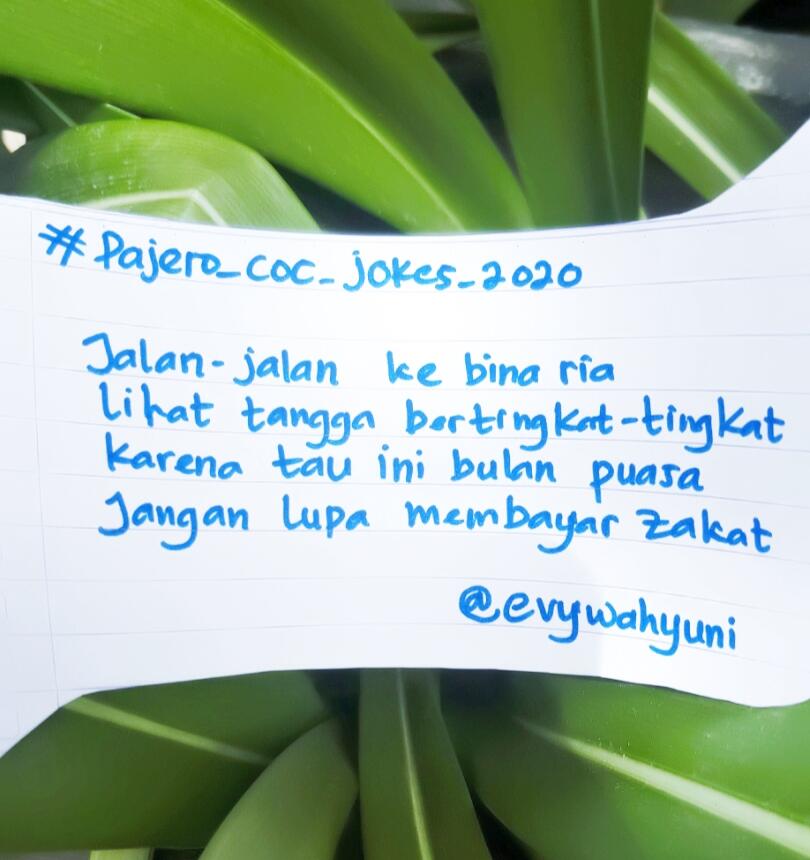 #Pajero_coc_jokes_2020
Jalan-jalan ke bina ria
lihat tangga bertingkat-tingkat
karena tau ini bulan puasa
Jangan lupa membayar zakat
@evywahyuni